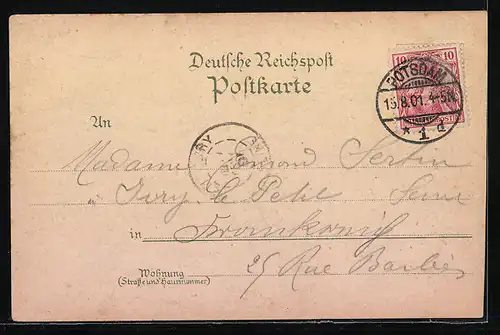 Deutsche Reichspost
Postkarte
10 10
POTSDAM
15.8.01. 4-5N.
* 1 d
An
IVRY
Madame Sertin
à Ivry le Petit Seine
in Frankreich
25 Rue
Wohnung
(Straße und Hausnummer)